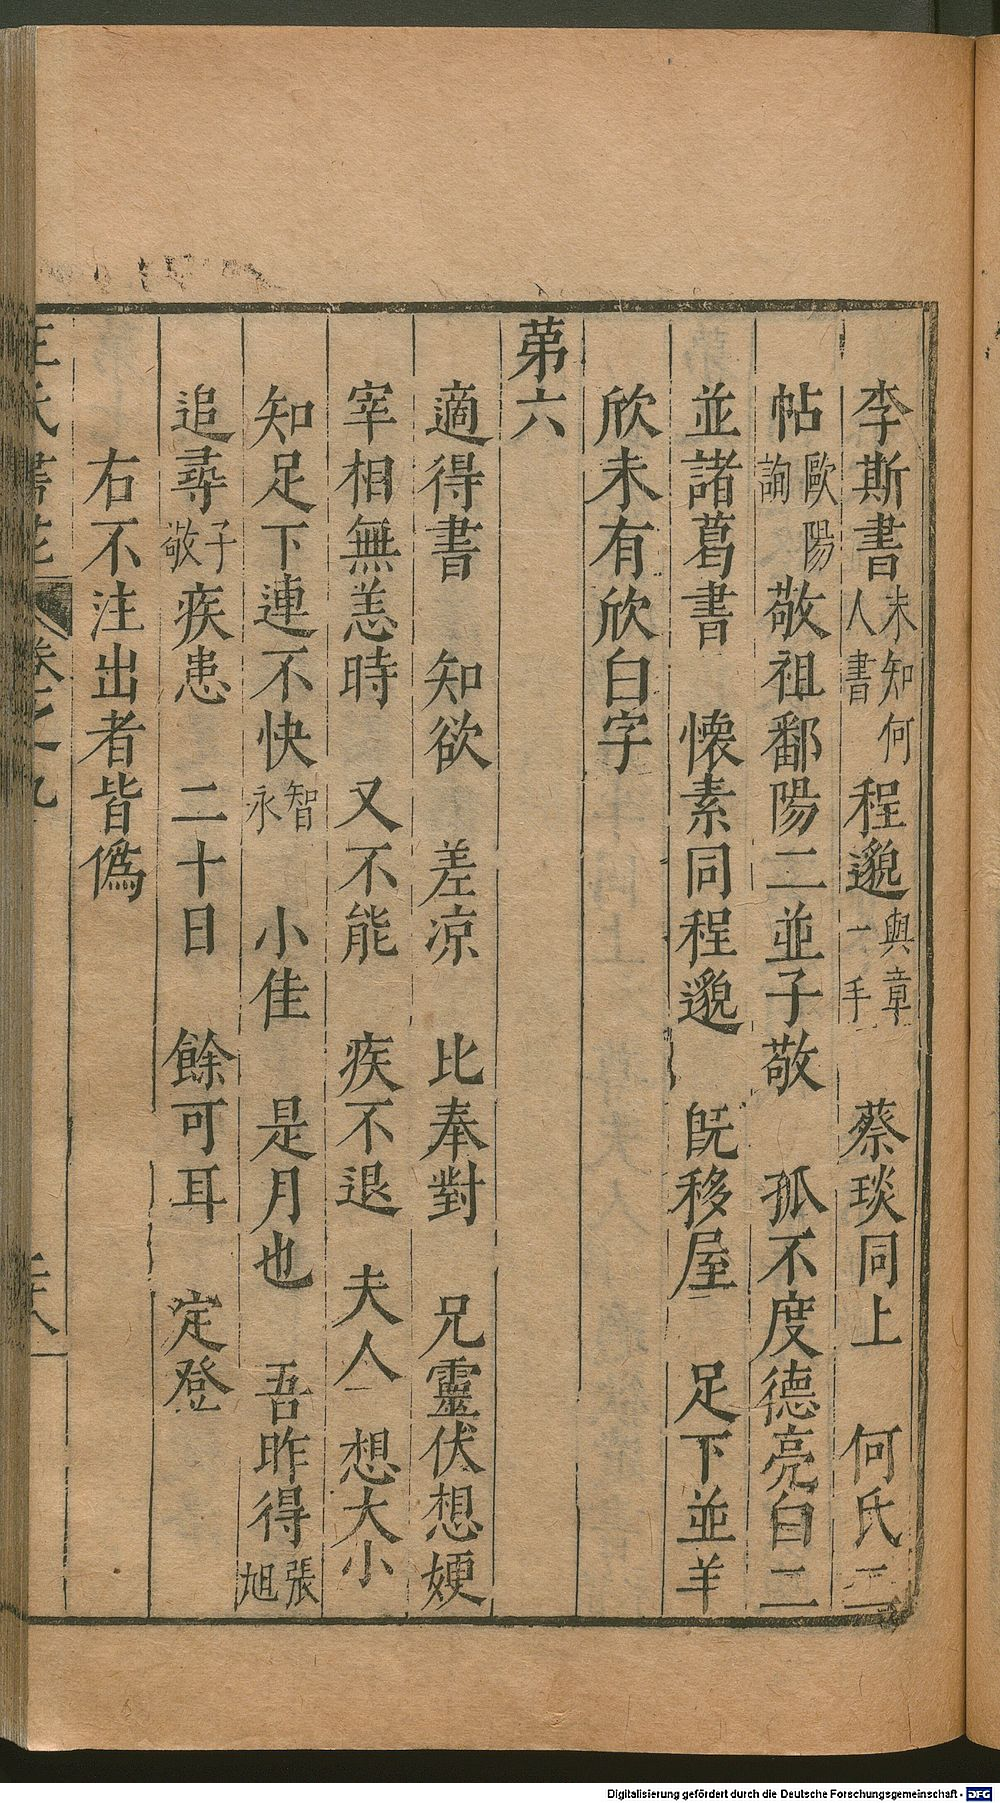 李斯書未知何人書程邈與章一手　蔡琰同上　何氏二
帖歐陽詢敬祖鄱陽二並子敬　孤不度德亮白二
並諸葛書　懷素同程邈　旣移屋　足下並羊
欣未有欣白字
苐六
適得書　知欲　差凉　比奉對　兄靈伏想嫂
宰相無恙時　又不能　疾不退　夫人　想大小
知足下連不快智永　小佳　是月也　吾昨得張旭
追尋子敬疾患　二十日　餘可耳　定登
右不注出者皆僞
王氏書苑　卷之九
Digitalisierung gefördert durch die Deutsche Forschungsgemeinschaft - DFG